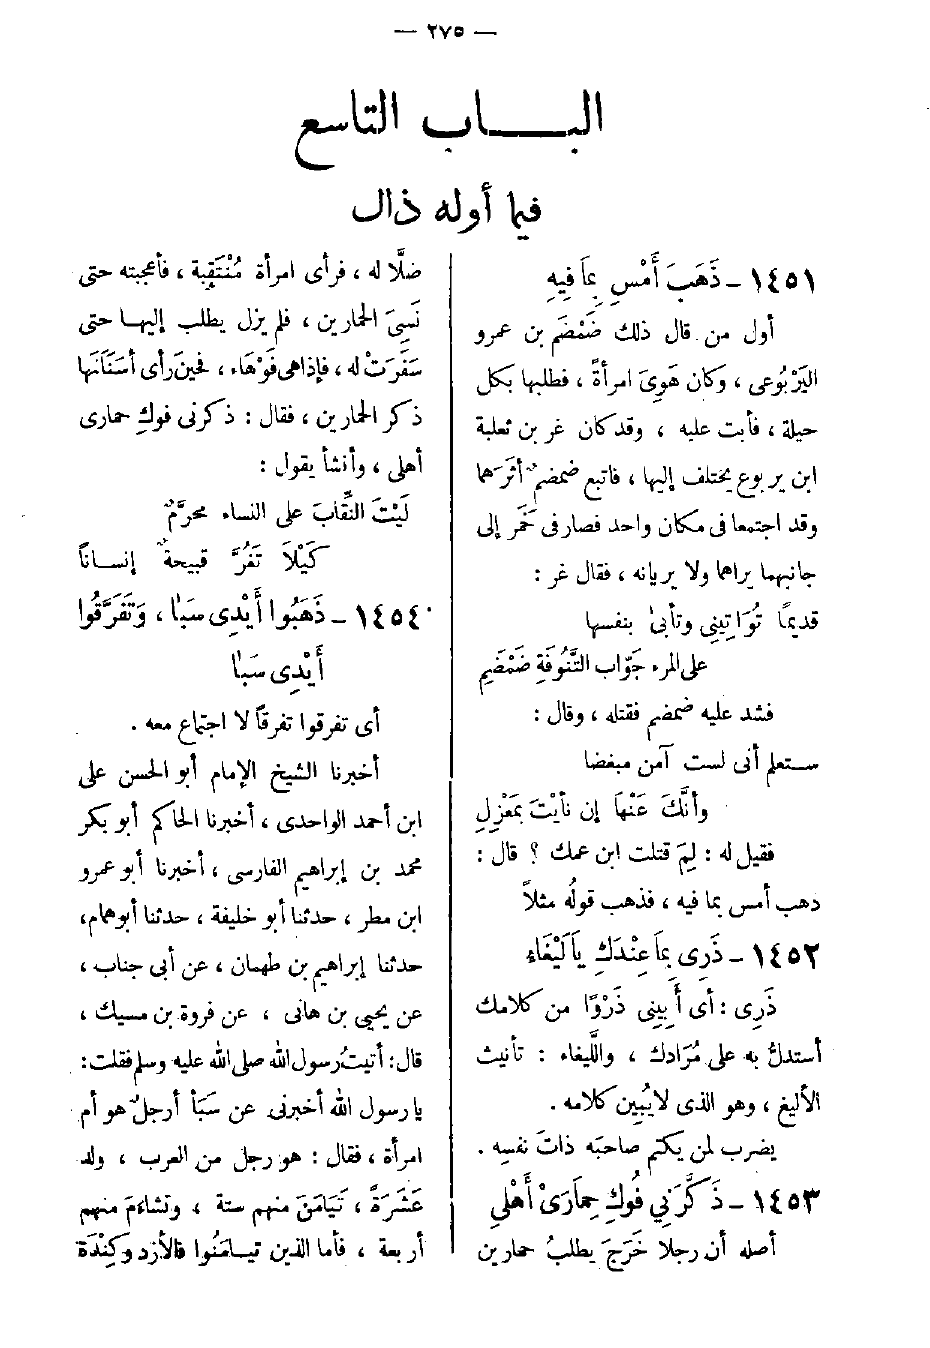 — ٢٧٥ —
البـــــاب التاسع
فيما أوله ذال
١٤٥١ – ذَهَبَ أَمْسِ بِمَا فِيهِ
أول من قال ذلك ضَمْضَم بن عمرو
اليَرْبُوعى ، وكان هَوِىَ امرأةً ، فطلبها بكل
حيلة ، فأبت عليه ، وقد كان غر بن ثعلبة
ابن يربوع يختلف إليها ، فاتبع ضمضمٌ أثرَهما
وقد اجتمعا فى مكان واحد فصار فى خَمَر إلى
جانبهما يراهما ولا يريانه ، فقال غر :
قديمًا تُوَاتِينِى وتأبىٰ بنفسها
على المرء جَوَّاب التَّنُوفَةِ ضَمْضَمِ
فشد عليه ضمضم فقتله ، وقال :
ستعلم أنى لست آمن مبغضا
وأنَّكَ عَنْهَا إن نأيْتَ بمَعْزِلِ
فقيل له : لِمَ قتلت ابن عمك ؟ قال :
ذهب أمس بما فيه ، فذهب قولُه مثلاً
١٤٥٢ – ذَرِى بِمَا عِنْدَكِ يَا لَيْغَاء
ذَرِى : أى أَبِينِى ذَرْوًا من كلامك
أستدلُّ به على مُرَادك ، واللَّيغاء : تأنيث
الأليغ ، وهو الذى لا يُبين كلامه .
يضرب لمن يكتم صاحبَه ذاتَ نفسِه .
١٤٥٣ – ذَكَّرَنِي فُوكِ حِمَارَىْ أَهْلِي
أصله أن رجلا خَرَجَ يطلبُ حمارين
ضلَّا له ، فرأى امرأة مُنْتَقِبة ، فأعجبته حتى
نَسِىَ الحمارين ، فلم يزل يطلب إليها حتى
سَفَرَتْ له ، فإذا هى فَوْهَاء ، فحينَ رأى أسْنَانَها
ذكر الحمارين ، فقال : ذكرنى فوكِ حمارى
أهلى ، وأنشأ يقول :
لَيْتَ النِّقَابَ على النساء محرَّمٌ
كَيْلَا تَغُرَّ قبيحةٌ إنسـانًا
١٤٥٤ – ذَهَبُوا أَيْدِى سَبَا ، وَتَفَرَّقُوا
أَيْدِى سَبَا
أى تفرقوا تفرقاً لا اجتماع معه .
أخبرنا الشيخ الإمام أبو الحسن على
ابن أحمد الواحدى ، أخبرنا الحاكم أبو بكر
محمد بن إبراهيم الفارسى ، أخبرنا أبو عمرو
ابن مطر ، حدثنا أبو خليفة ، حدثنا أبو همام،
حدثنا إبراهيم بن طهمان ، عن أبى جناب ،
عن يحيى بن هانى ، عن فروة بن مسيك ،
قال: أتيتُ رسول الله صلى الله عليه وسلم فقلت:
يا رسول الله أخبرنى عن سَبَأ أرجلٌ هو أم
امرأة ، فقال : هو رجل من العرب ، ولد
عَشَرَةً ، تَيَامَنَ منهم ستة ، وتشاءمَ منهم
أربعة ، فأما الذين تيـامَنُوا فالأزد وكِنْدَة